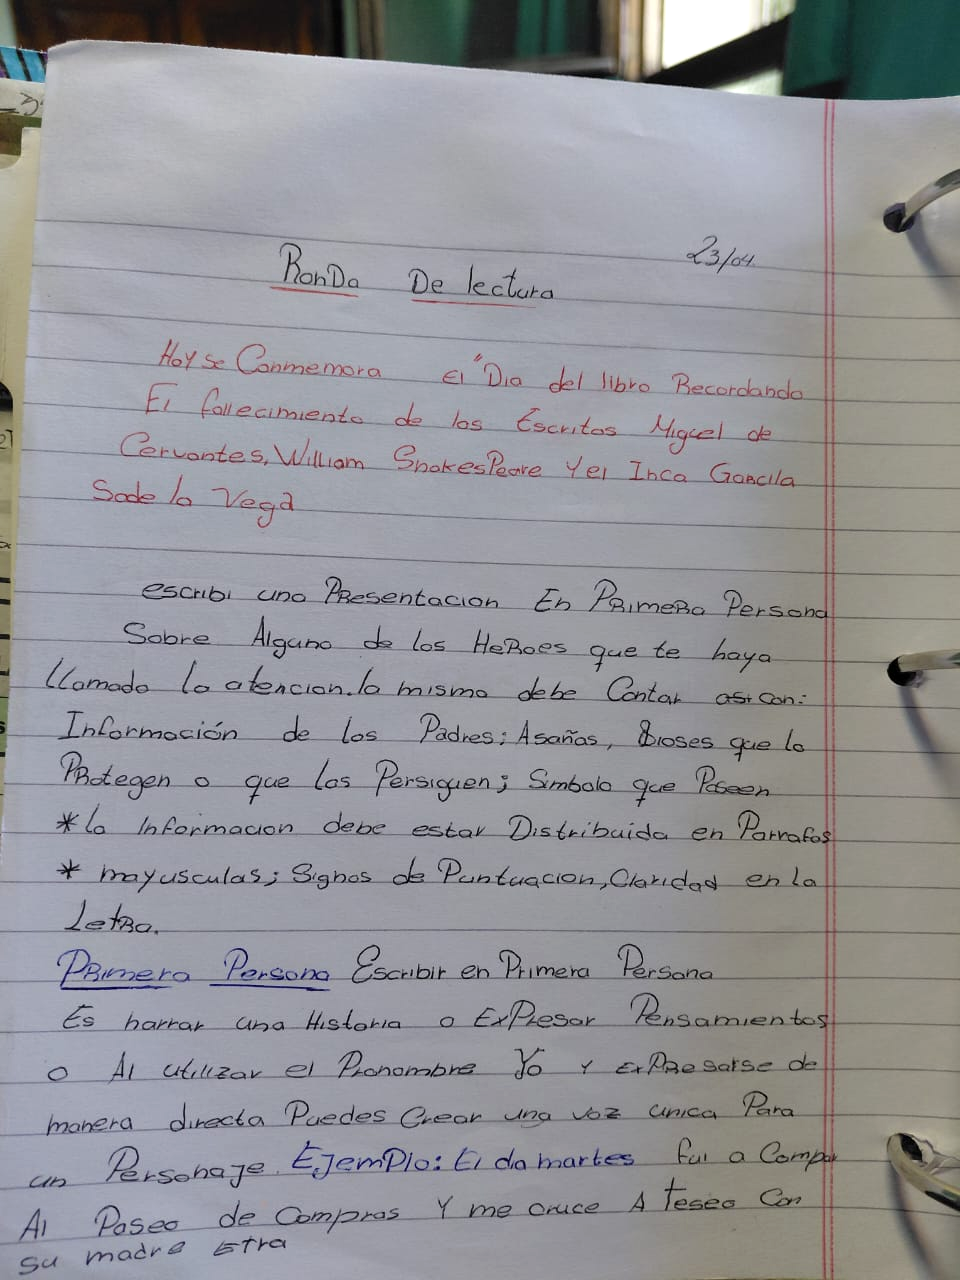 23/04
RonDa De lectura
Hoy se Conmemora el "Dia del libro Recordando
El fallecimiento de los Escritos Miguel de
Cervantes, William ShakesPeare Y el Inca Garcila
Sode la Vega
escribi una PResentacion En PRimeRa Persona
Sobre Alguno de los HeRoes que te haya
Llamado la atencion. la misma debe Contar asi con:
Información de los Padres; Asañas, Dioses que lo
PRotegen o que los Persiguen; Simbolo que Poseen
* la Informacion debe estar Distribuida en Parrafos
* mayusculas; Signos de Puntuacion, Claridad en la
LetRa.
PRimera Persona Escribir en Primera Persona
Es narrar una Historia o ExPresar Pensamientos
o Al utilizar el Pronombre Yo Y ExPResarse de
manera directa Puedes Crear una voz unica Para
un Personaje. EJemPlo: El dia martes fui a Compar
Al Paseo de Compras Y me cruce A Teseo Con
su madre Etra